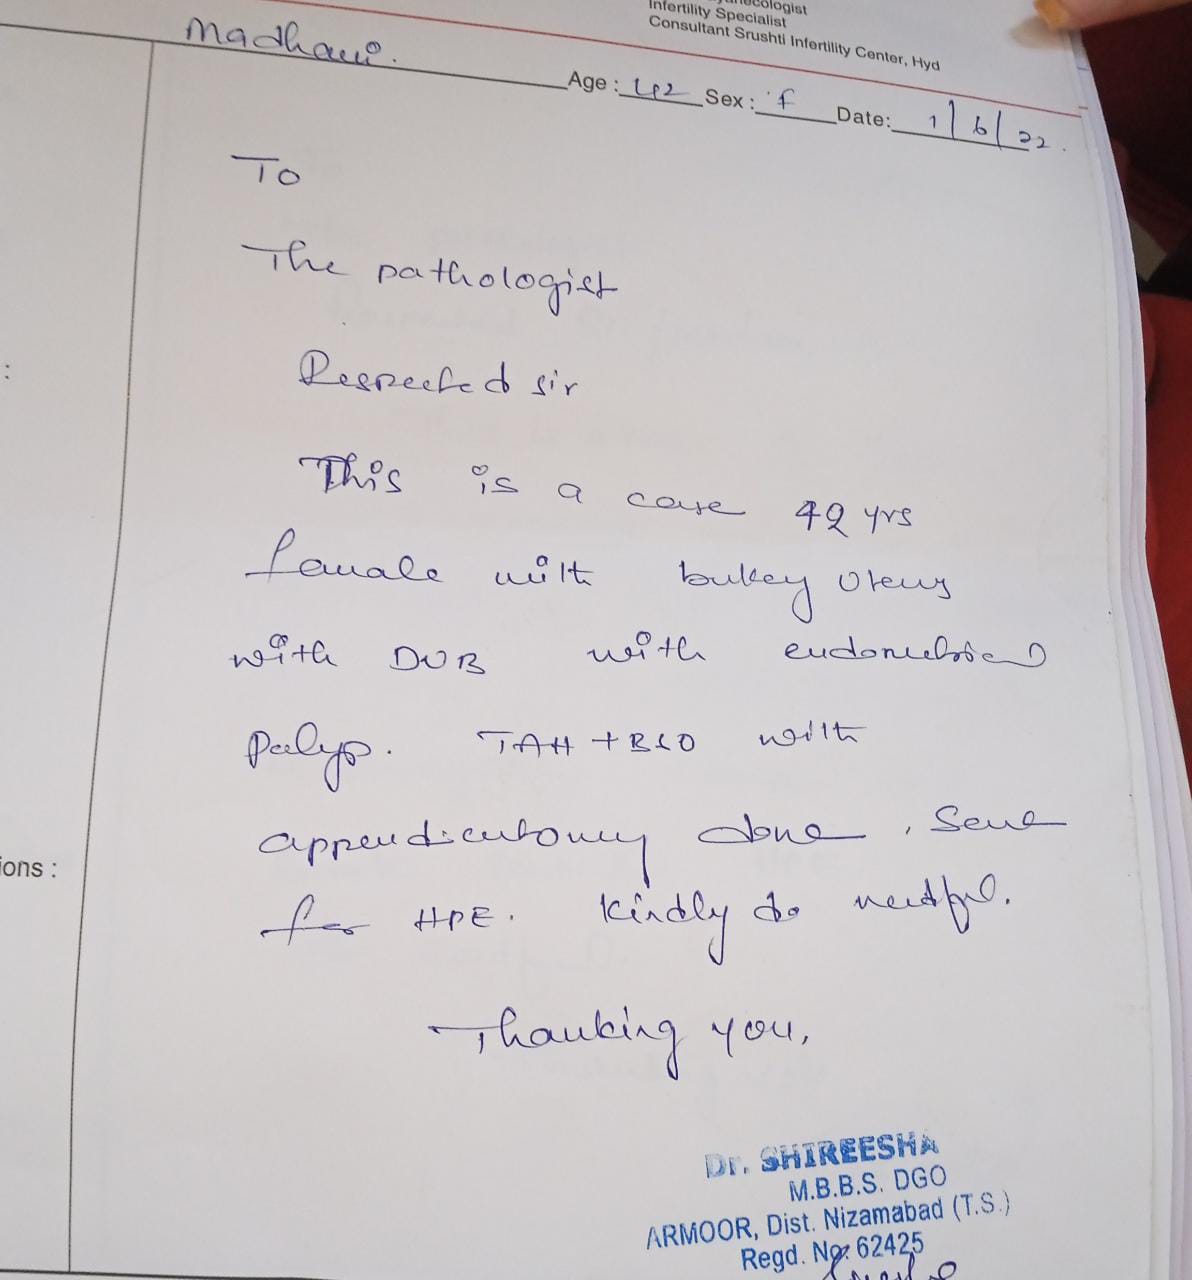 Infertility Specialist
Consultant Srushti Infertility Center, Hyd
Madhavi.
Age: 42 Sex: f Date: 1/6/22.
To
The pathologist
:
Respected sir
This is a case 42 yrs
female with bulkey uterus
with DUB with endometrial
polyp. TAH + BSO with
appendicectomy done, send
ions :
for HPE. kindly do needful.
Thanking you,
Dr. SHIREESHA
M.B.B.S. DGO
ARMOOR, Dist. Nizamabad (T.S.)
Regd. No: 62425